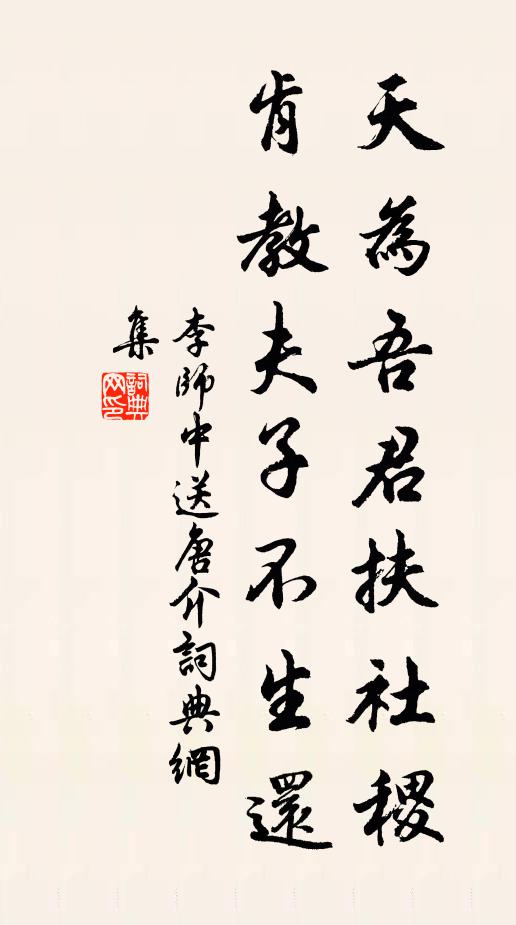 天為吾君扶社稷
肯教夫子不生還
李師中送唐介詞典網
集
詞典
网印